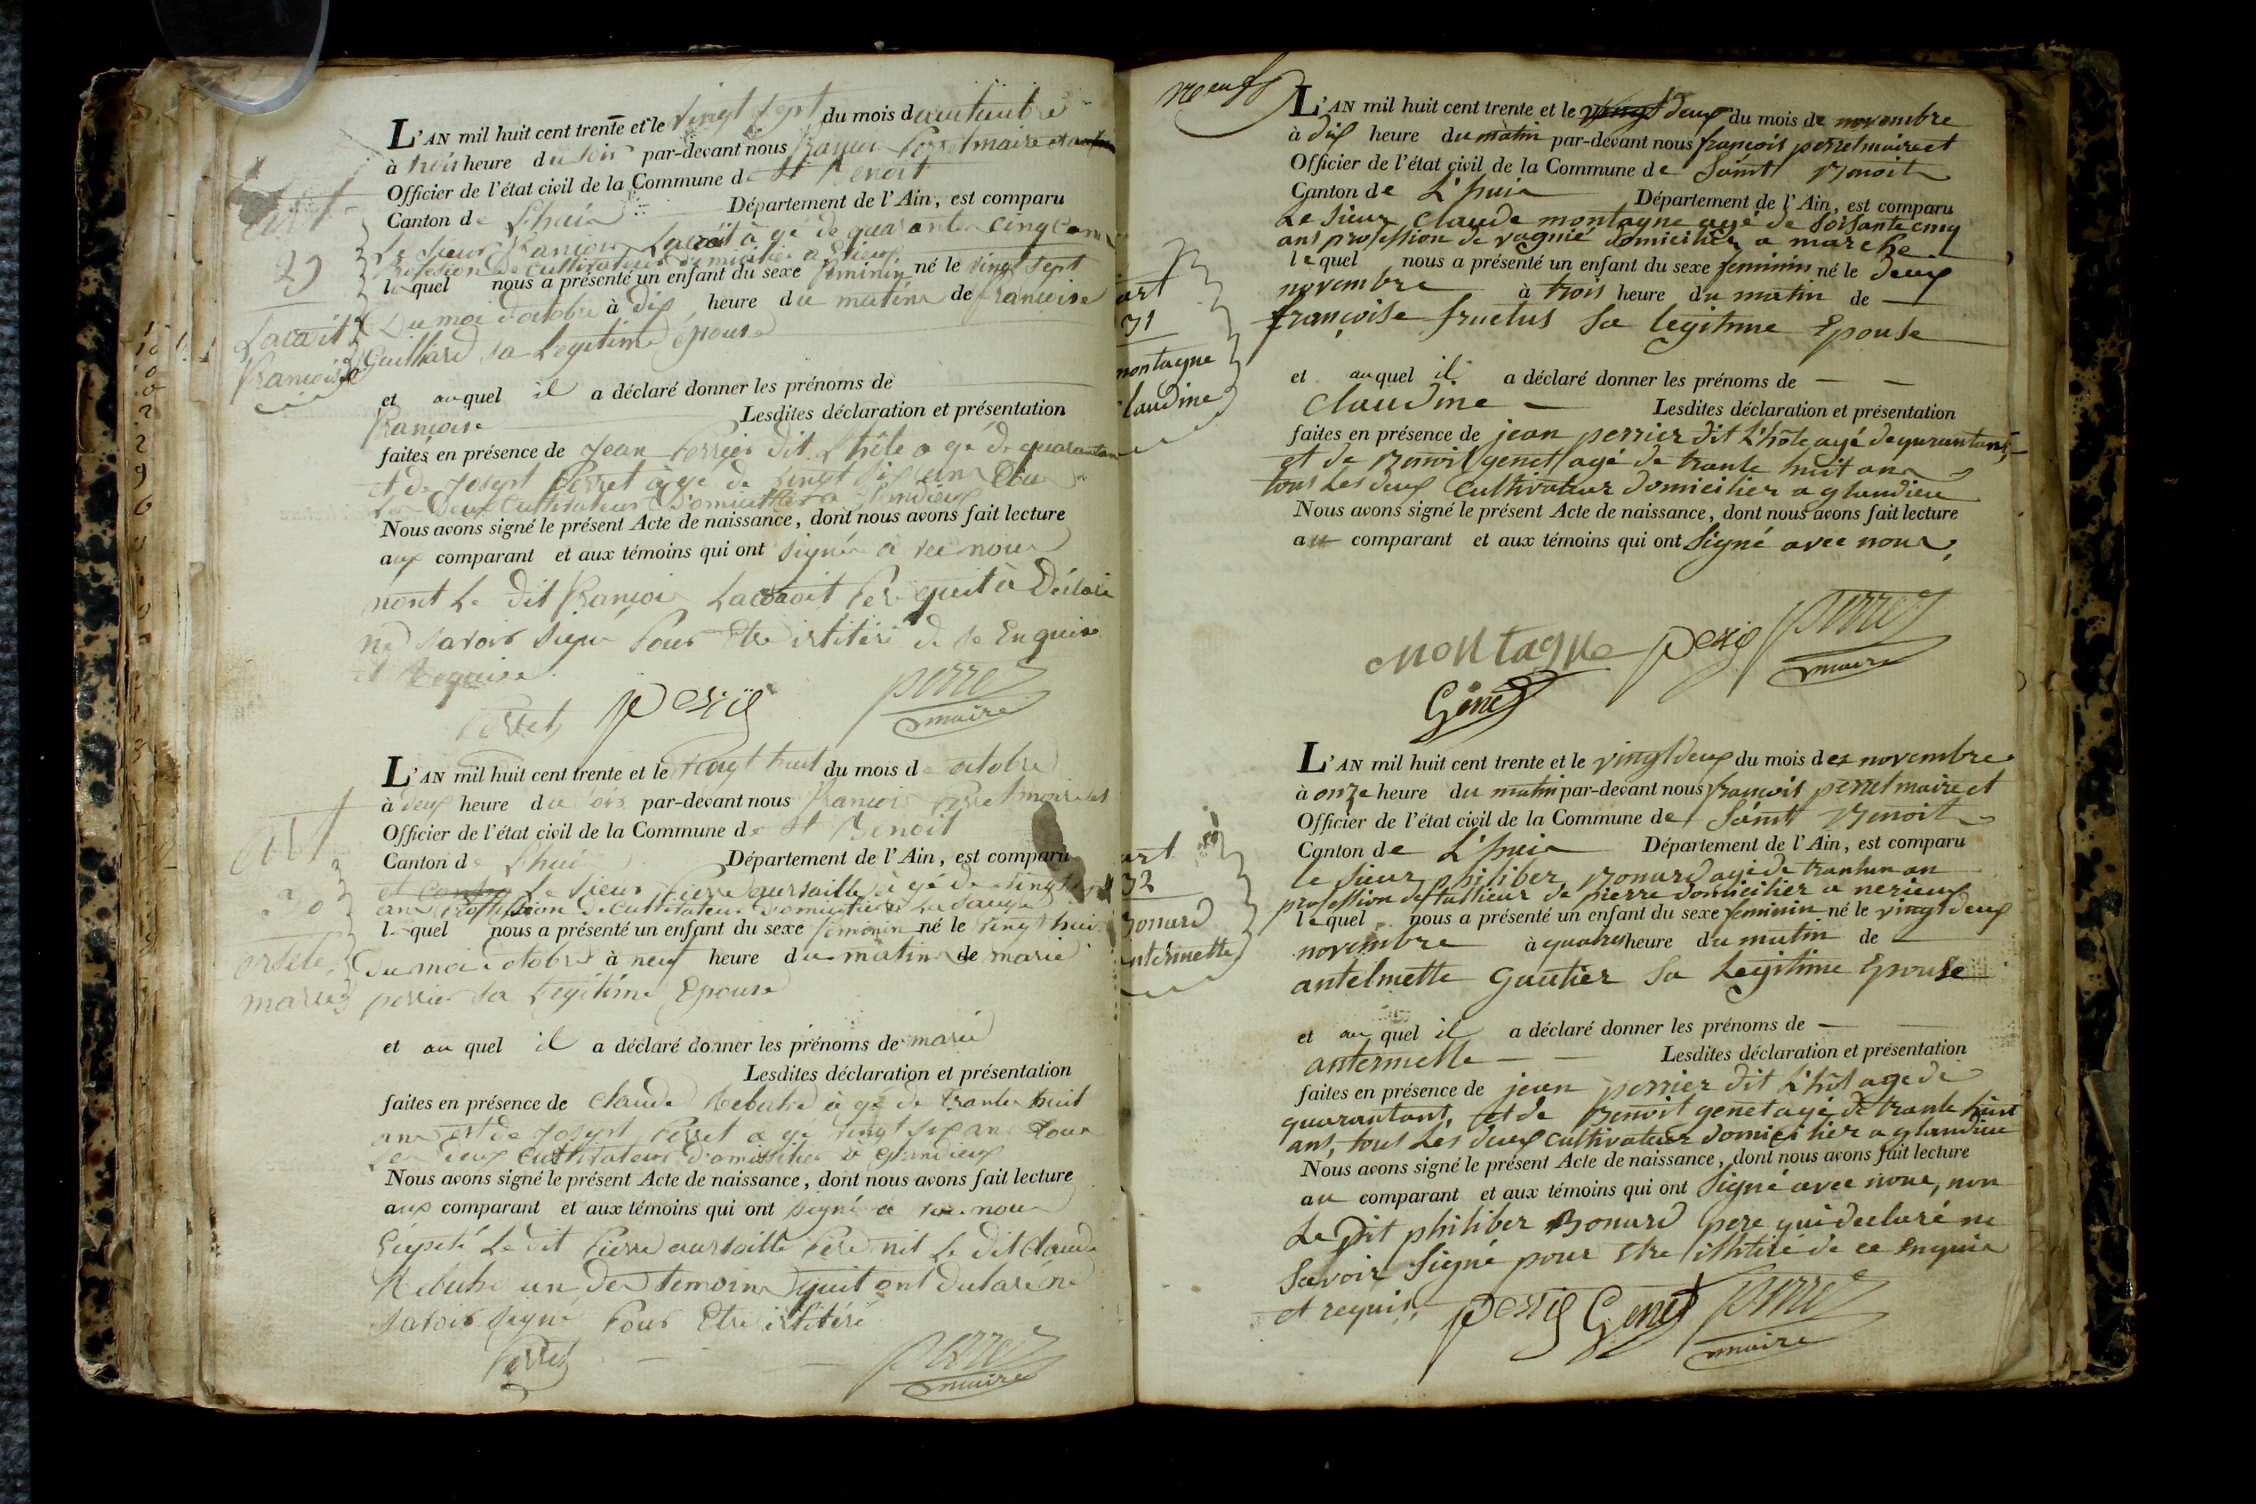 L'AN mil huit cent trente et le vingt sept du mois d
à trois heure du soir par-devant nous françois perret maire et
Officier de l'état civil de la Commune de St Benoit
Canton de Lhuis Département de l'Ain, est comparu
art
29
Lacoit
françoise
Le sieur françois à gé de quarante cinq ans
profession de cultivateur domicilier a
lequel nous a présenté un enfant du sexe feminin né le vingt sept
Du moi d'octobre à dix heure du matin de françoise
Guilliard sa Legitime épouse
et auquel il a déclaré donner les prénoms de
françoise Lesdites déclaration et présentation
faites en présence de Jean perrier dit L'hôte a gé de quarante
et de Joseph Perret à gé de vingt six ans tous
Les deux cultivateur Domicillier a Glandieux
Nous avons signé le présent Acte de naissance, dont nous avons fait lecture
aux comparant et aux témoins qui ont signé a vec nous
nont Le dit françois Pere quit à Déclaré
ne savoir signé Pour Etre ilitéré de ce Enquise
et Requise
Perret perrié perret
maire
L'AN mil huit cent trente et le vingt huit du mois de octobre
à deux heure du soir par-devant nous françois Perret maire et
Officier de l'état civil de la Commune de St Benoit
Canton de Lhuis Département de l'Ain, est comparu
art
30
marie
Le Sieur Pierre à gé de vingt
ans proffession de cultivateur domicilier
lequel nous a présenté un enfant du sexe feminin né le vingt huit
Du moi octobre à neuf heure du matin de marie
perrier sa Legitime Epouse
et au quel il a déclaré donner les prénoms de marie
Lesdites déclaration et présentation
faites en présence de claude à gé de trante huit
ans et de Joseph Perret a gé vingt six ans tous
Les deux cultivateur domicilier a Glandieux
Nous avons signé le présent Acte de naissance, dont nous avons fait lecture
aux comparant et aux témoins qui ont signé a vec nous
Le dit Pierre Pere nit Le dit claude
un des temoins quit ont declaré ne
savoir signé Pour Etre ilitéré
Perret perret
maire
neuf
L'AN mil huit cent trente et le vingt deux du mois de novembre
à dix heure du matin par-devant nous françois perret maire et
Officier de l'état civil de la Commune de Saint Benoit
Canton de L'huis Département de l'Ain, est comparu
art
31
montagne
claudine
Le sieur claude montagne agé de soisante cinq
ans profession de domicilier a marche
lequel nous a présenté un enfant du sexe feminin né le deux
novembre à trois heure du matin de
françoise fructus sa legitime Epouse
et auquel il a déclaré donner les prénoms de
claudine Lesdites déclaration et présentation
faites en présence de jean perrier dit L'hôte agé de quarantans
et de Benoit genet agé de trante huit ans
tous Les deux cultivateur domicilier a glandieu
Nous avons signé le présent Acte de naissance, dont nous avons fait lecture
au comparant et aux témoins qui ont signé avec nous,
montagne perrié perret
maire
Genet
L'AN mil huit cent trente et le vingt deux du mois de novembre
à onze heure du matin par-devant nous françois perret maire et
Officier de l'état civil de la Commune de Saint Benoit
Canton de L'huis Département de l'Ain, est comparu
art
32
Bonard
antermette
le sieur philiber Bonard agé de trantun an
profession de tallieur de pierre domicilier a nerieux
lequel nous a présenté un enfant du sexe feminin né le vingt deux
novembre à quatres heure du matin de
antelmette Gautier sa Legitime Epouse
et au quel il a déclaré donner les prénoms de
antermette Lesdites déclaration et présentation
faites en présence de jean perrier dit L'hôt age de
quarantant, et de Benoit genet agé de trante huit
ans, tous Les deux cultivateur domicilier a glandieu
Nous avons signé le présent Acte de naissance, dont nous avons fait lecture
au comparant et aux témoins qui ont signé avec nous, non
Le Dit philiber Bonard pere qui declaré ne
savoir signé pour Etre de ce enquie
et requis, perrié Genet perret
maire